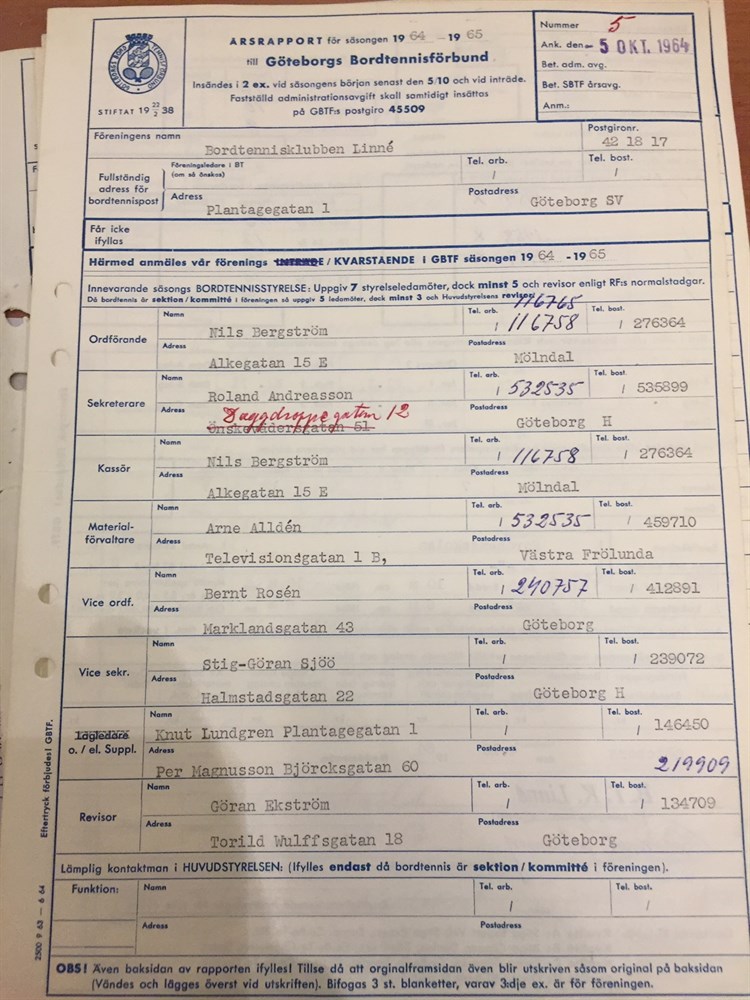 ÅRSRAPPORT för säsongen 1964 - 1965
till Göteborgs Bordtennisförbund
Insändes i 2 ex. vid säsongens början senast den 5/10 och vid inträde.
Fastställd administrationsavgift skall samtidigt insättas
på GBTF:s postgiro 45509
STIFTAT 19 22/2 38
Nummer 5
Ank. den - 5 OKT. 1964
Bet. adm. avg.
Bet. SBTF årsavg.
Anm.:
Föreningens namn Bordtennisklubben Linné
Postgironr. 42 18 17
Fullständig adress för bordtennispost
Föreningsledare i BT (om så önskas)
Tel. arb. /
Tel. bost. /
Adress Plantagegatan 1
Postadress Göteborg SV
Får icke ifyllas
Härmed anmäles vår förenings INTRÄDE / KVARSTÅENDE i GBTF säsongen 1964 - 1965
Innevarande säsongs BORDTENNISSTYRELSE: Uppgiv 7 styrelseledamöter, dock minst 5 och revisor enligt RF:s normalstadgar.
Då bordtennis är sektion/kommitté i föreningen så uppgiv 5 ledamöter, dock minst 3 och Huvudstyrelsens revisor.
116765
Ordförande
Namn Nils Bergström Tel. arb. / 116758 Tel. bost. / 276364
Adress Alkegatan 15 E Postadress Mölndal
Sekreterare
Namn Roland Andreasson Tel. arb. / 532535 Tel. bost. / 535899
Daggdroppegatan 12
Adress Önskevädersgatan 51 Postadress Göteborg H
Kassör
Namn Nils Bergström Tel. arb. / 116758 Tel. bost. / 276364
Adress Alkegatan 15 E Postadress Mölndal
Material-förvaltare
Namn Arne Alldén Tel. arb. / 532535 Tel. bost. / 459710
Adress Televisionsgatan 1 B, Postadress Västra Frölunda
Vice ordf.
Namn Bernt Rosén Tel. arb. / 240757 Tel. bost. / 412891
Adress Marklandsgatan 43 Postadress Göteborg
Vice sekr.
Namn Stig-Göran Sjöö Tel. arb. / Tel. bost. / 239072
Adress Halmstadsgatan 22 Postadress Göteborg H
Lagledare o. / el. Suppl.
Namn Knut Lundgren Plantagegatan 1 Tel. arb. / Tel. bost. / 146450
Adress Per Magnusson Björcksgatan 60 Postadress 219909
Revisor
Namn Göran Ekström Tel. arb. / Tel. bost. / 134709
Adress Torild Wulffsgatan 18 Postadress Göteborg
Lämplig kontaktman i HUVUDSTYRELSEN: (Ifylles endast då bordtennis är sektion/kommitté i föreningen).
Funktion: Namn Tel. arb. / Tel. bost. /
Adress Postadress
OBS! Även baksidan av rapporten ifylles! Tillse då att orginalframsidan även blir utskriven såsom original på baksidan
(Vändes och lägges överst vid utskriften). Bifogas 3 st. blanketter, varav 3:dje ex. är för föreningen.
Eftertryck förbjudes! GBTF.
2500 9 63 — 6 64